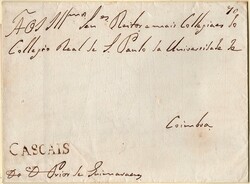 AOS Ill.mos Sen.es Reitor e mais Collegiaes do
Collegio Real de S. Paulo da Universidade de
Coimbra
CASCAIS
Do D. Prior de Guimaraens